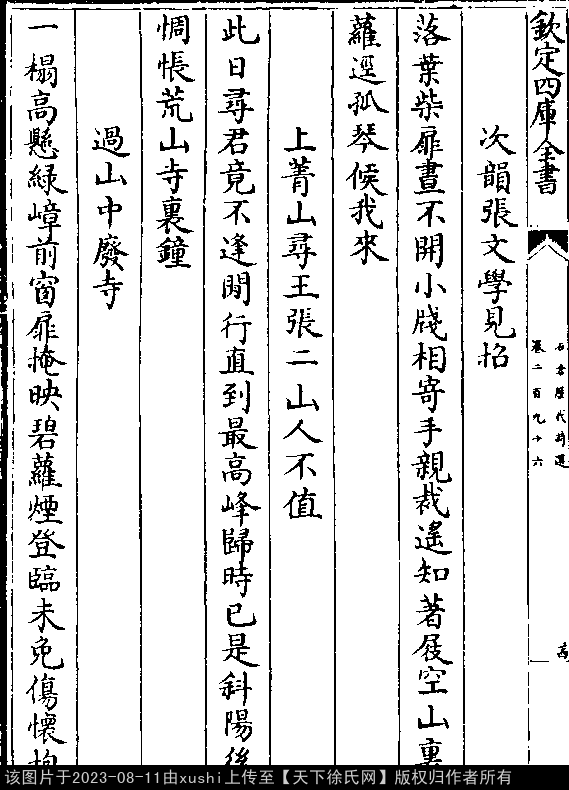 欽定四庫全書
石倉歷代詩選
卷二百九十六
次韻張文學見招
落葉柴扉晝不開小牋相寄手親裁遙知著屐空山裏
蘿逕孤琴候我來
上菁山尋王張二山人不值
此日尋君竟不逢閒行直到最高峰歸時已是斜陽後
惆悵荒山寺裏鐘
過山中廢寺
一榻高懸綠嶂前窗扉掩映碧蘿煙登臨未免傷懷抱
该图片于2023-08-11由xushi上传至【天下徐氏网】版权归作者所有